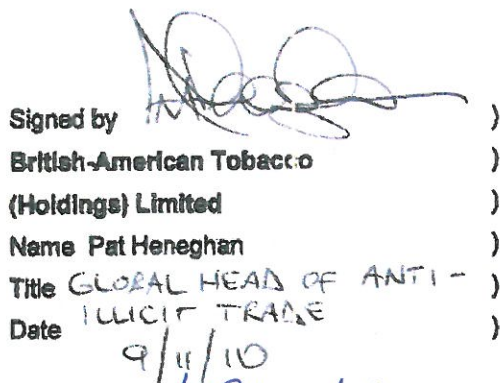 Signed by )
British-American Tobacco )
(Holdings) Limited )
Name Pat Heneghan )
Title GLOBAL HEAD OF ANTI- )
ILLICIT TRADE
Date )
9/11/10